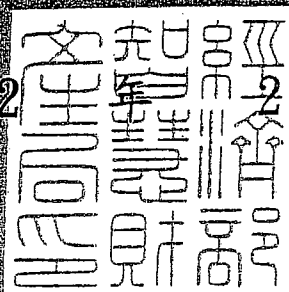 經濟部
智慧財
產局印
2 年 2